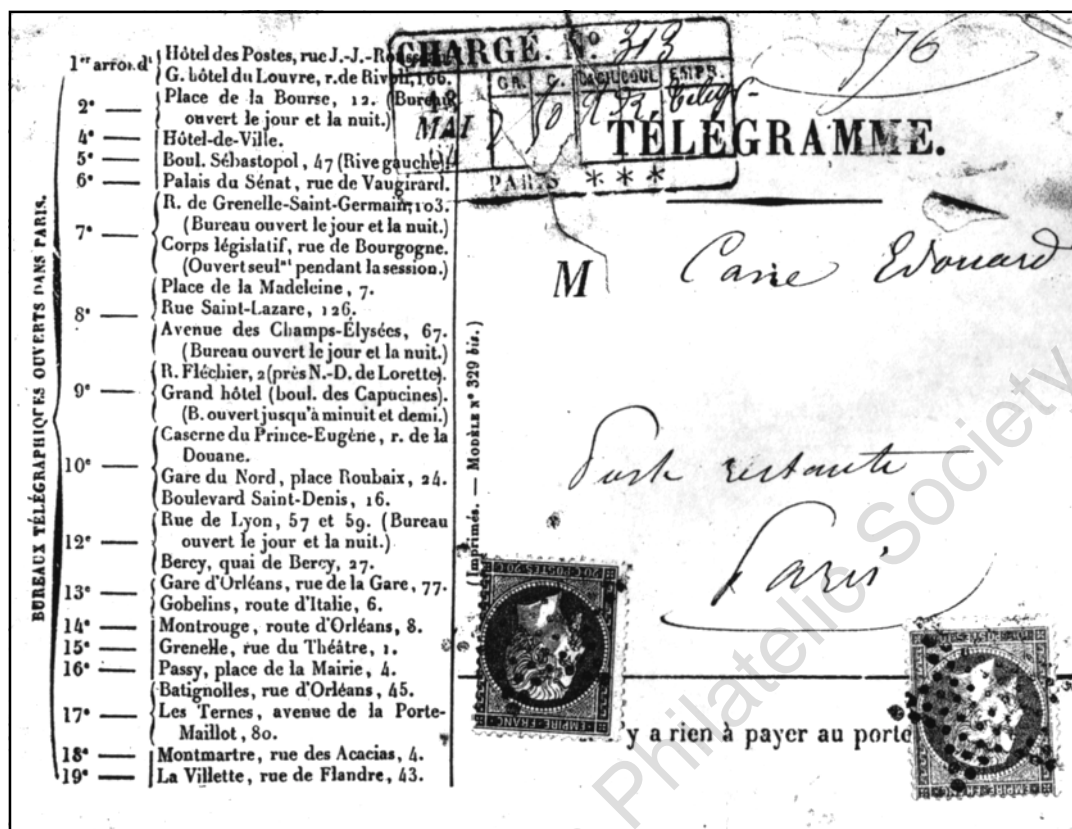 BUREAUX TÉLÉGRAPHIQUES OUVERTS DANS PARIS.
1er arron.dt Hôtel des Postes, rue J.-J.-Rousseau
G. hôtel du Louvre, r. de Rivoli, 166.
2e — Place de la Bourse, 12. (Bureau
ouvert le jour et la nuit.)
4e — Hôtel-de-Ville.
5e — Boul. Sébastopol, 47 (Rive gauche).
6e — Palais du Sénat, rue de Vaugirard.
7e — R. de Grenelle-Saint-Germain, 103.
(Bureau ouvert le jour et la nuit.)
Corps législatif, rue de Bourgogne.
(Ouvert seult pendant la session.)
8e — Place de la Madeleine, 7.
Rue Saint-Lazare, 126.
Avenue des Champs-Élysées, 67.
(Bureau ouvert le jour et la nuit.)
9e — R. Fléchier, 2 (près N.-D. de Lorette).
Grand hôtel (boul. des Capucines).
(B. ouvert jusqu'à minuit et demi.)
10e — Caserne du Prince-Eugène, r. de la
Douane.
Gare du Nord, place Roubaix, 24.
Boulevard Saint-Denis, 16.
12e — Rue de Lyon, 57 et 59. (Bureau
ouvert le jour et la nuit.)
Bercy, quai de Bercy, 27.
13e — Gare d'Orléans, rue de la Gare, 77.
Gobelins, route d'Italie, 6.
14e — Montrouge, route d'Orléans, 8.
15e — Grenelle, rue du Théâtre, 1.
16e — Passy, place de la Mairie, 4.
17e — Batignolles, rue d'Orléans, 45.
Les Ternes, avenue de la Porte-
Maillot, 80.
18e — Montmartre, rue des Acacias, 4.
19e — La Villette, rue de Flandre, 43.
(Imprimés. — MODÈLE N° 329 bis.)
CHARGÉ. No 313
GR. C. CACH. COUL EMPR.
MAI
PARIS ***
576
TÉLÉGRAMME.
M Edouard
Poste restante
Paris
20 C POSTES 20 C
EMPIRE FRANC
y a rien à payer au porte
Philatelic Society